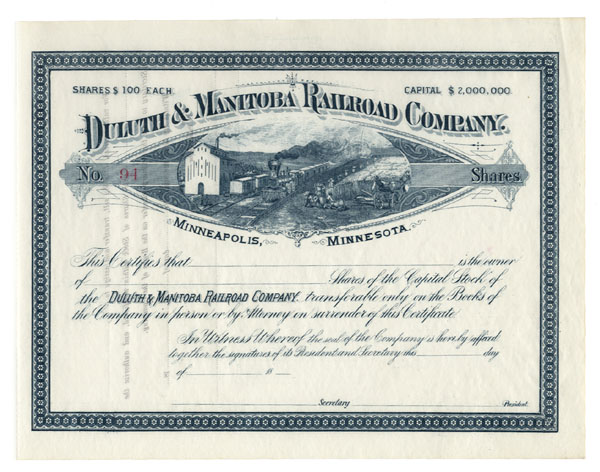 SHARES $ 100 EACH. CAPITAL $ 2,000,000.
DULUTH & MANITOBA RAILROAD COMPANY.
No. 94 Shares
MINNEAPOLIS, MINNESOTA.
This Certifies that is the owner
of Shares of the Capital Stock of
the DULUTH & MANITOBA RAILROAD COMPANY transferable only on the Books of
the Company in person or by Attorney on surrender of this Certificate
In Witness Whereof the seal of the Company is hereby affixed
together the signatures of its President and Secretary this day
of 18
Secretary President